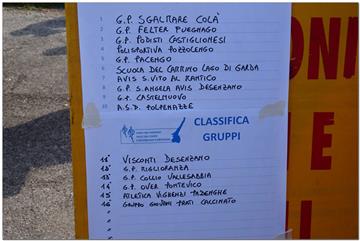 1 G.P. SGALITARE COLÀ
2 G.P. FELTER PUEGNAGO
3 G.P. PODISTI CASTIGLIONESI
4 POLISPORTIVA POZZOLENGO
5 G.P. PACENGO
6 SCUOLA DEL CAMMINO LAGO DI GARDA
7 AVIS S. VITO AL MANTICO
8 G.P. S. ANGELA AVIS DESENZANO
9 G.P. CASTELNUOVO
10 A.S.D. POLPENAZZE
CLASSIFICA
GRUPPI
11° VISCONTI DESENZANO
12° G.P. RIGLIORANZA
13° G.P. COLLIO VALLESABBIA
14° G.P. OVER PONTEVICO
15° ATLETICA VIGHENZI PADENGHE
16° GRUPPO GIOVANI PRATI CALCINATO
ONI
E
E